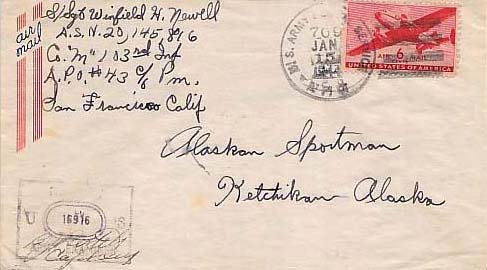 S/Sgt Winfield H. Newell
A.S.N. 20,145,896
Co. "M" 103rd Inf
A.P.O. #43 c/o P.M.
San Francisco Calif
air mail
U.S. ARMY
709
JAN
15
1944
A.P.O.
6¢
AIR MAIL
UNITED STATES OF AMERICA
Alaskan Sportman
Ketchikan Alaska
U S
16916